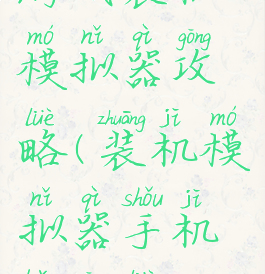 mó nǐ qì gōng
模拟器攻
lüè zhuāng jī mó
略(装机模
nǐ qì shǒu jī
拟器手机